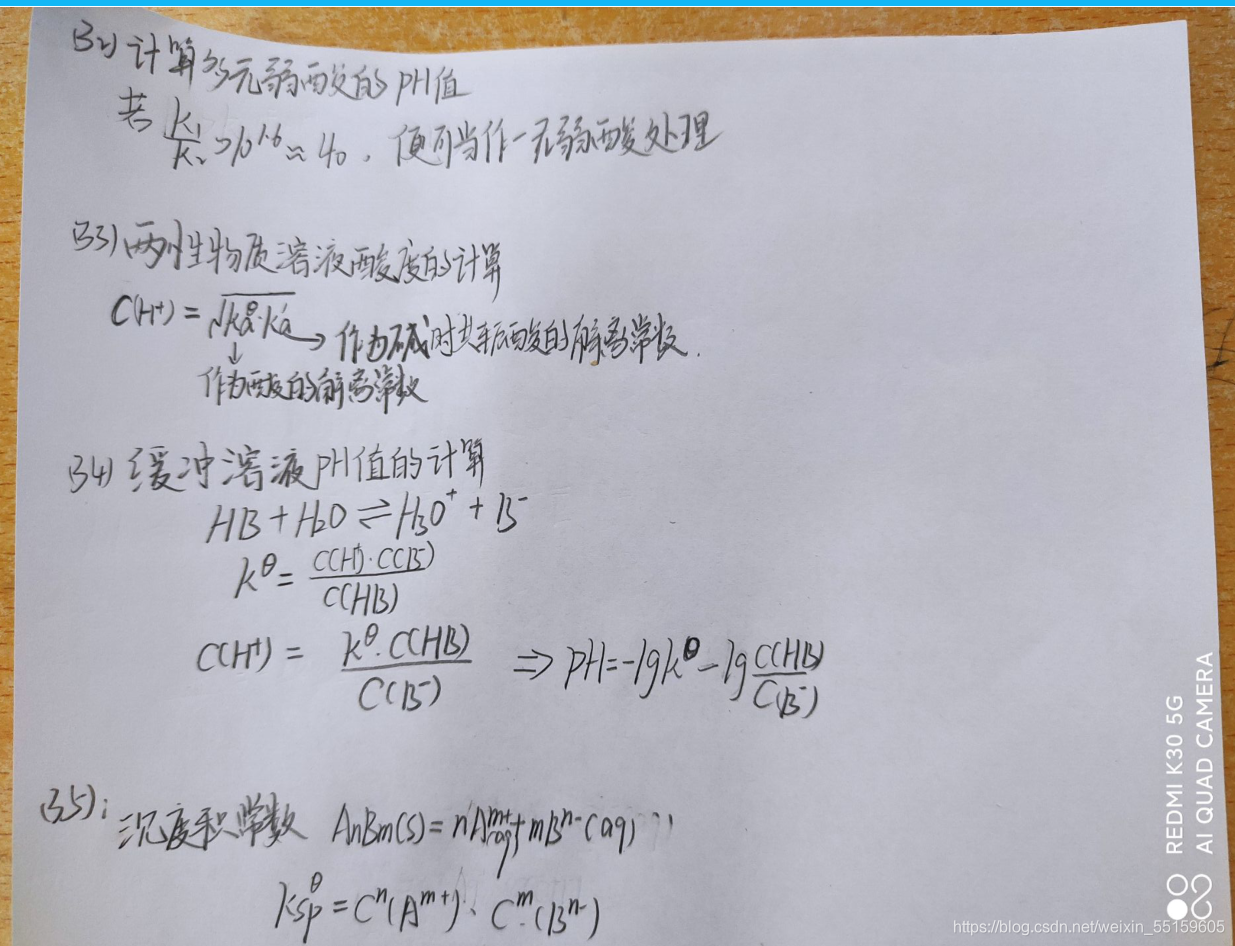 32) 计算多元弱酸的pH值
若 K₁/K₂ > 10^1.6 ≈ 40，便可当作一元弱酸处理
33) 两性生物质溶液酸度的计算
C(H⁺) = √(Ka^θ·Ka′) → 作为碱时共轭酸的解离常数.
↓
作为酸的解离常数
34) 缓冲溶液pH值的计算
HB + H₂O ⇌ H₃O⁺ + B⁻
K^θ = C(H⁺)·C(B⁻)/C(HB)
C(H⁺) = K^θ·C(HB)/C(B⁻) ⇒ pH = -lgK^θ - lg C(HB)/C(B⁻)
35): 沉度积常数 AnBm(s) = nA^m+(aq) + mB^n-(aq)
Ksp^θ = C^n(A^m+)·C^m(B^n-)
REDMI K30 5G
AI QUAD CAMERA
https://blog.csdn.net/weixin_55159605